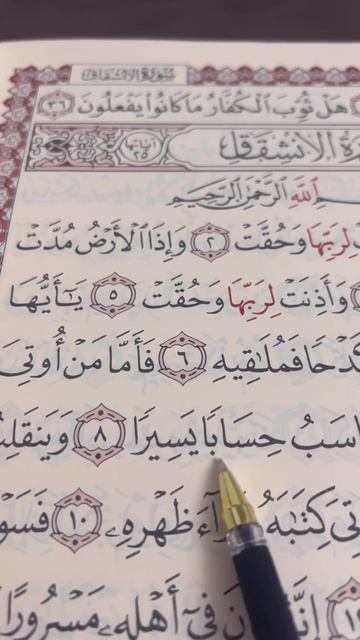 سورة الانشقاق
هَلْ ثُوِّبَ ٱلْكُفَّارُ مَا كَانُوا۟ يَفْعَلُونَ ٣٦
رَةُ الِانْشِقَاقِ آيَاتُهَا ٢٥
ـمِ ٱللَّهِ ٱلرَّحْمَٰنِ ٱلرَّحِيمِ
لِرَبِّهَا وَحُقَّتْ ٢ وَإِذَا ٱلْأَرْضُ مُدَّتْ
وَأَذِنَتْ لِرَبِّهَا وَحُقَّتْ ٥ يَٰٓأَيُّهَا
كَدْحًا فَمُلَٰقِيهِ ٦ فَأَمَّا مَنْ أُوتِىَ
ـاسَبُ حِسَابًا يَسِيرًا ٨ وَيَنقَلِبُ
ـتِىَ كِتَٰبَهُۥ وَرَآءَ ظَهْرِهِۦ ١٠ فَسَوْ
فِىٓ أَهْلِهِۦ مَسْرُورًا